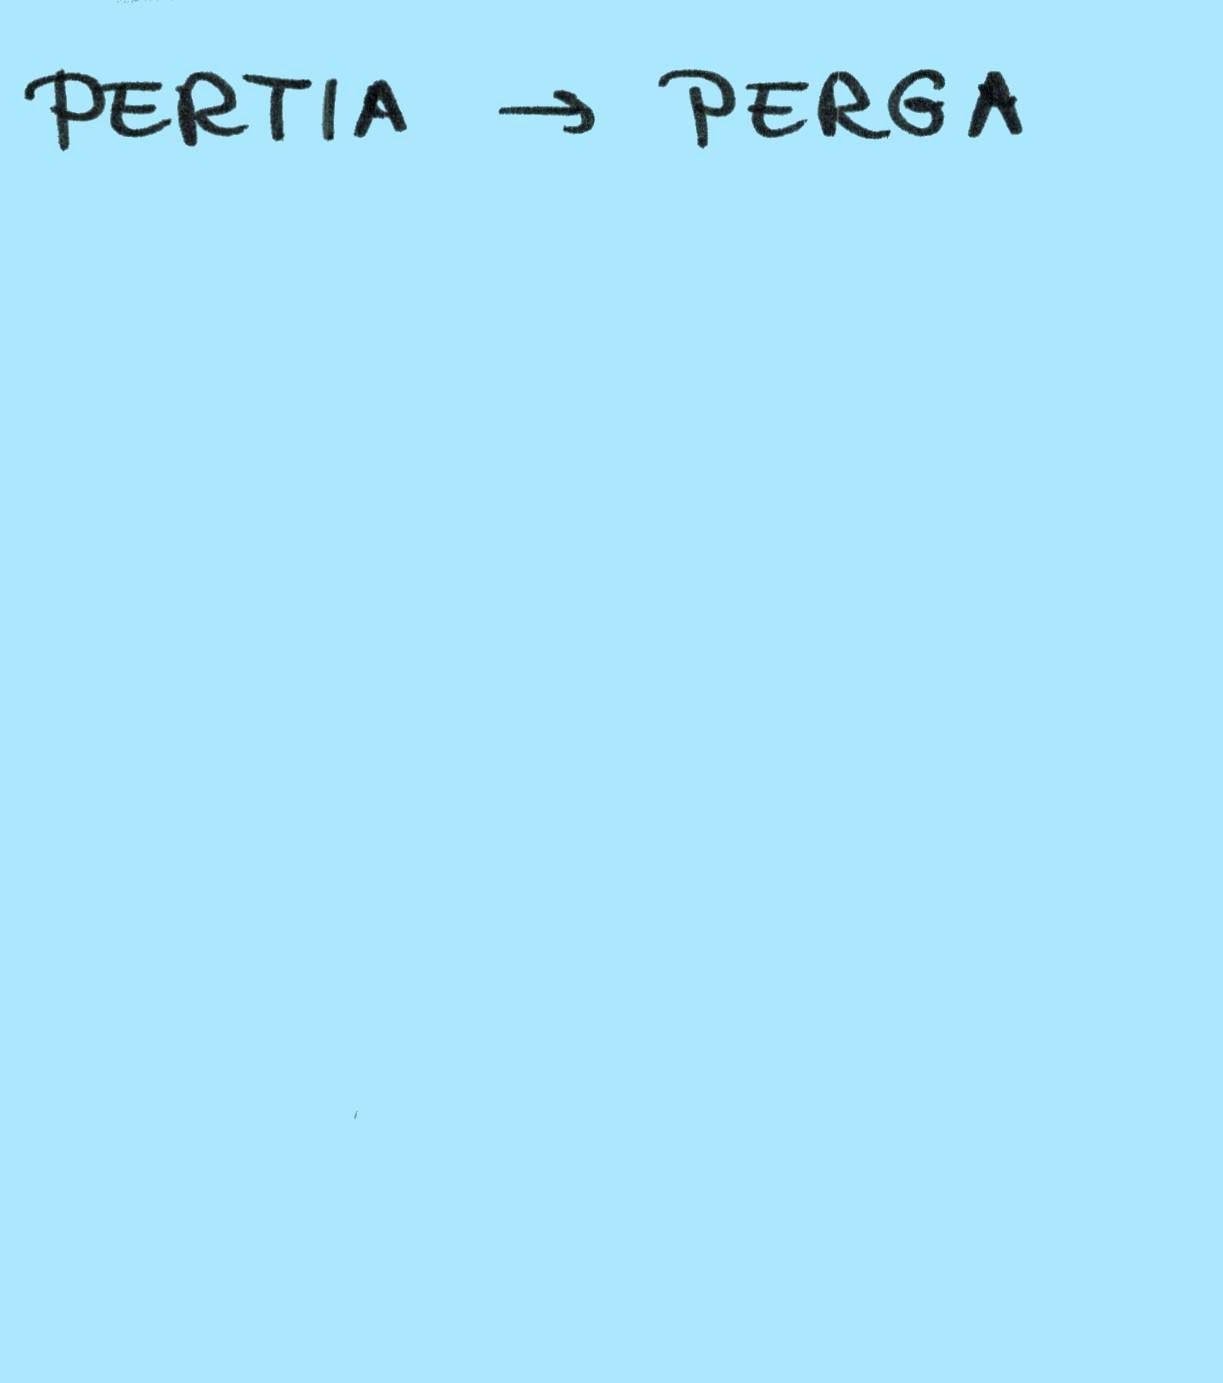 PERTIA → PERGA